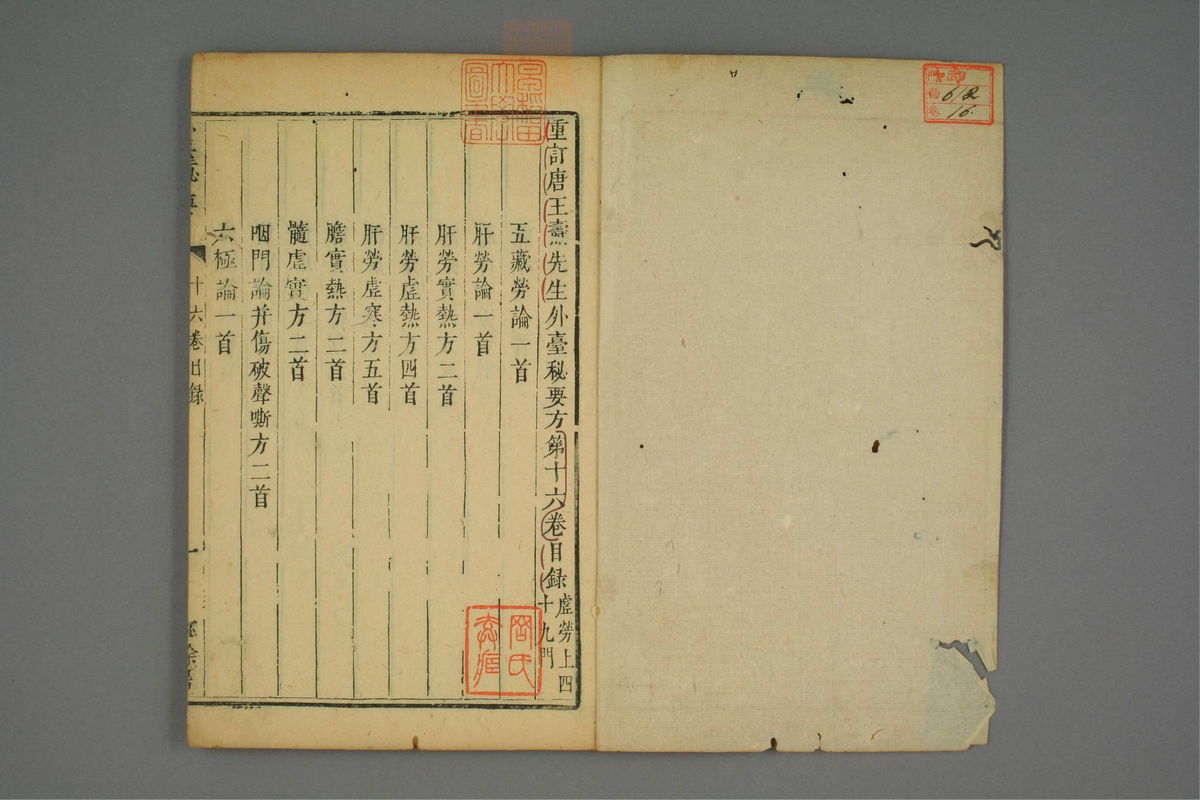 重訂唐王燾先生外臺秘要方第十六卷目録 虛勞上四十九門
五藏勞論一首
肝勞論一首
肝勞實熱方二首
肝勞虛熱方四首
肝勞虛寒方五首
膽實熱方二首
髓虛實方二首
咽門論并傷破聲嘶方二首
六極論一首
十六卷目録
一
612
16